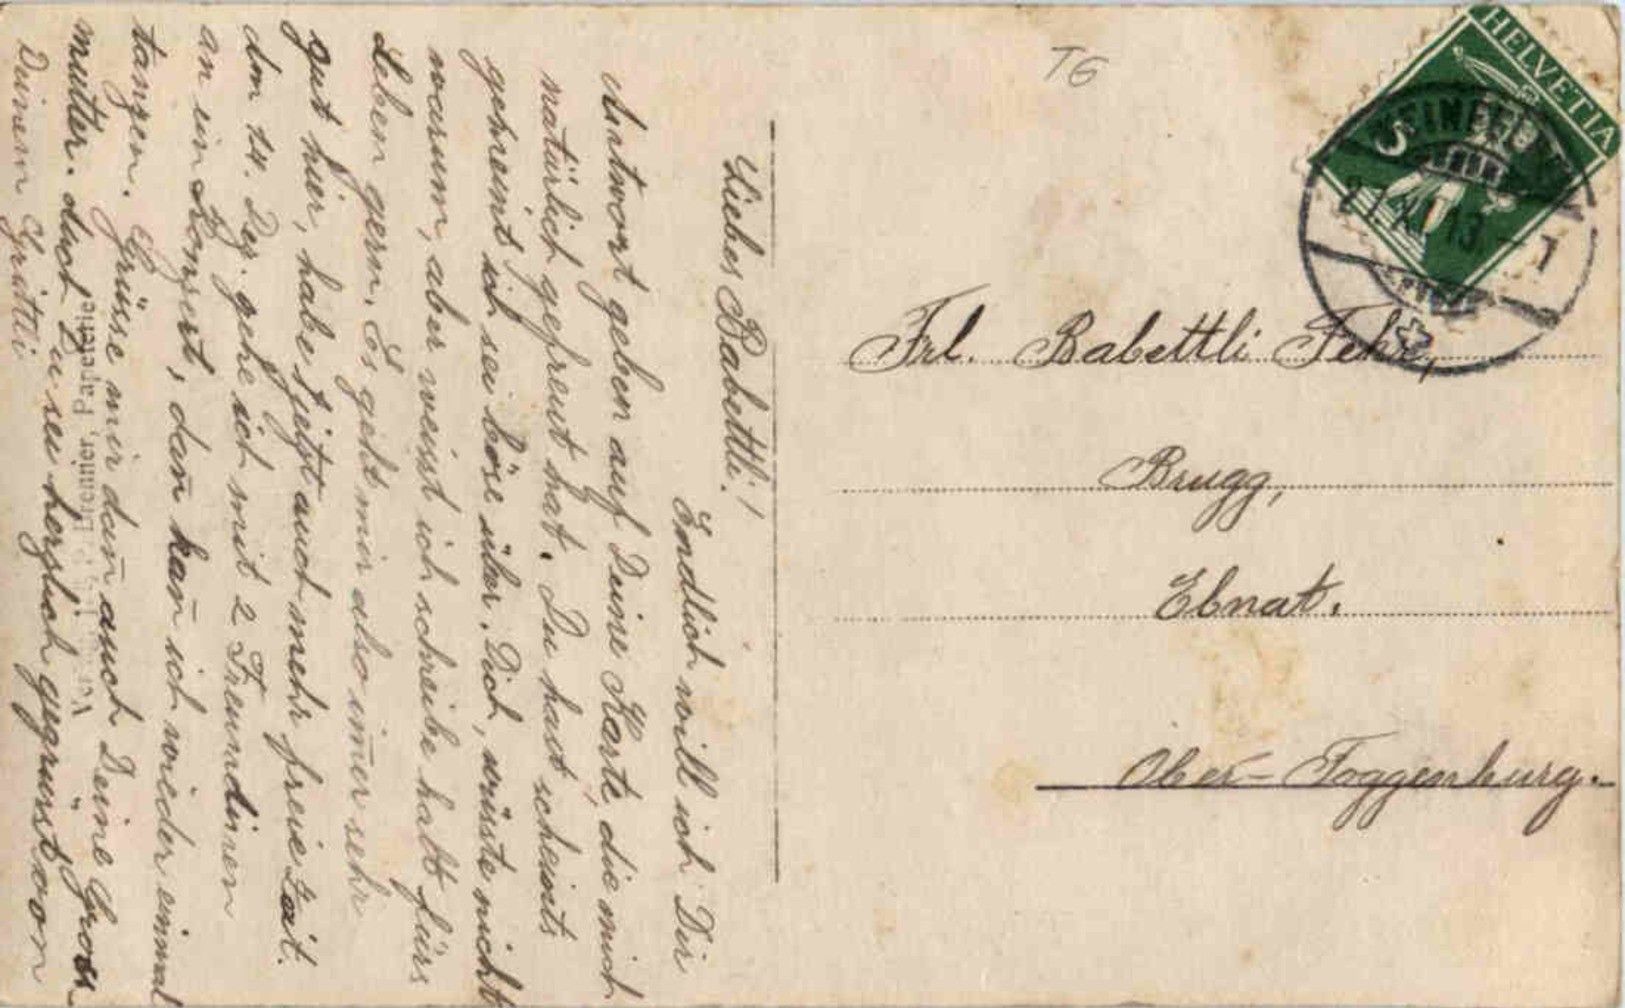 Liebes Babettli!
Endlich will ich Dir
Antwort geben auf Deine Karte, die mich
natürlich gefreut hat. Du hast scheints
gemeint ich sei böse über Dich, wüsste nicht
warum, aber weisst ich schreibe halt fürs
Leben gern. Es geht mir also im̄er sehr
gut hier, habe jetzt auch mehr freie Zeit.
den 14. Dez. gehe ich mit 2 Freundinen
an ein Konzert, dan̄ kan̄ ich wieder einmal
tanzen. Grüsse mir dan̄ auch Deine Gross
mutter. auch Du sei herzlich gegrüsst von
Deinem Gritti
Papeterie
TG
HELVETIA
5
13 - 1
Frl. Babettli Fehr,
Brugg,
Ebnat.
Ober-Toggenburg.